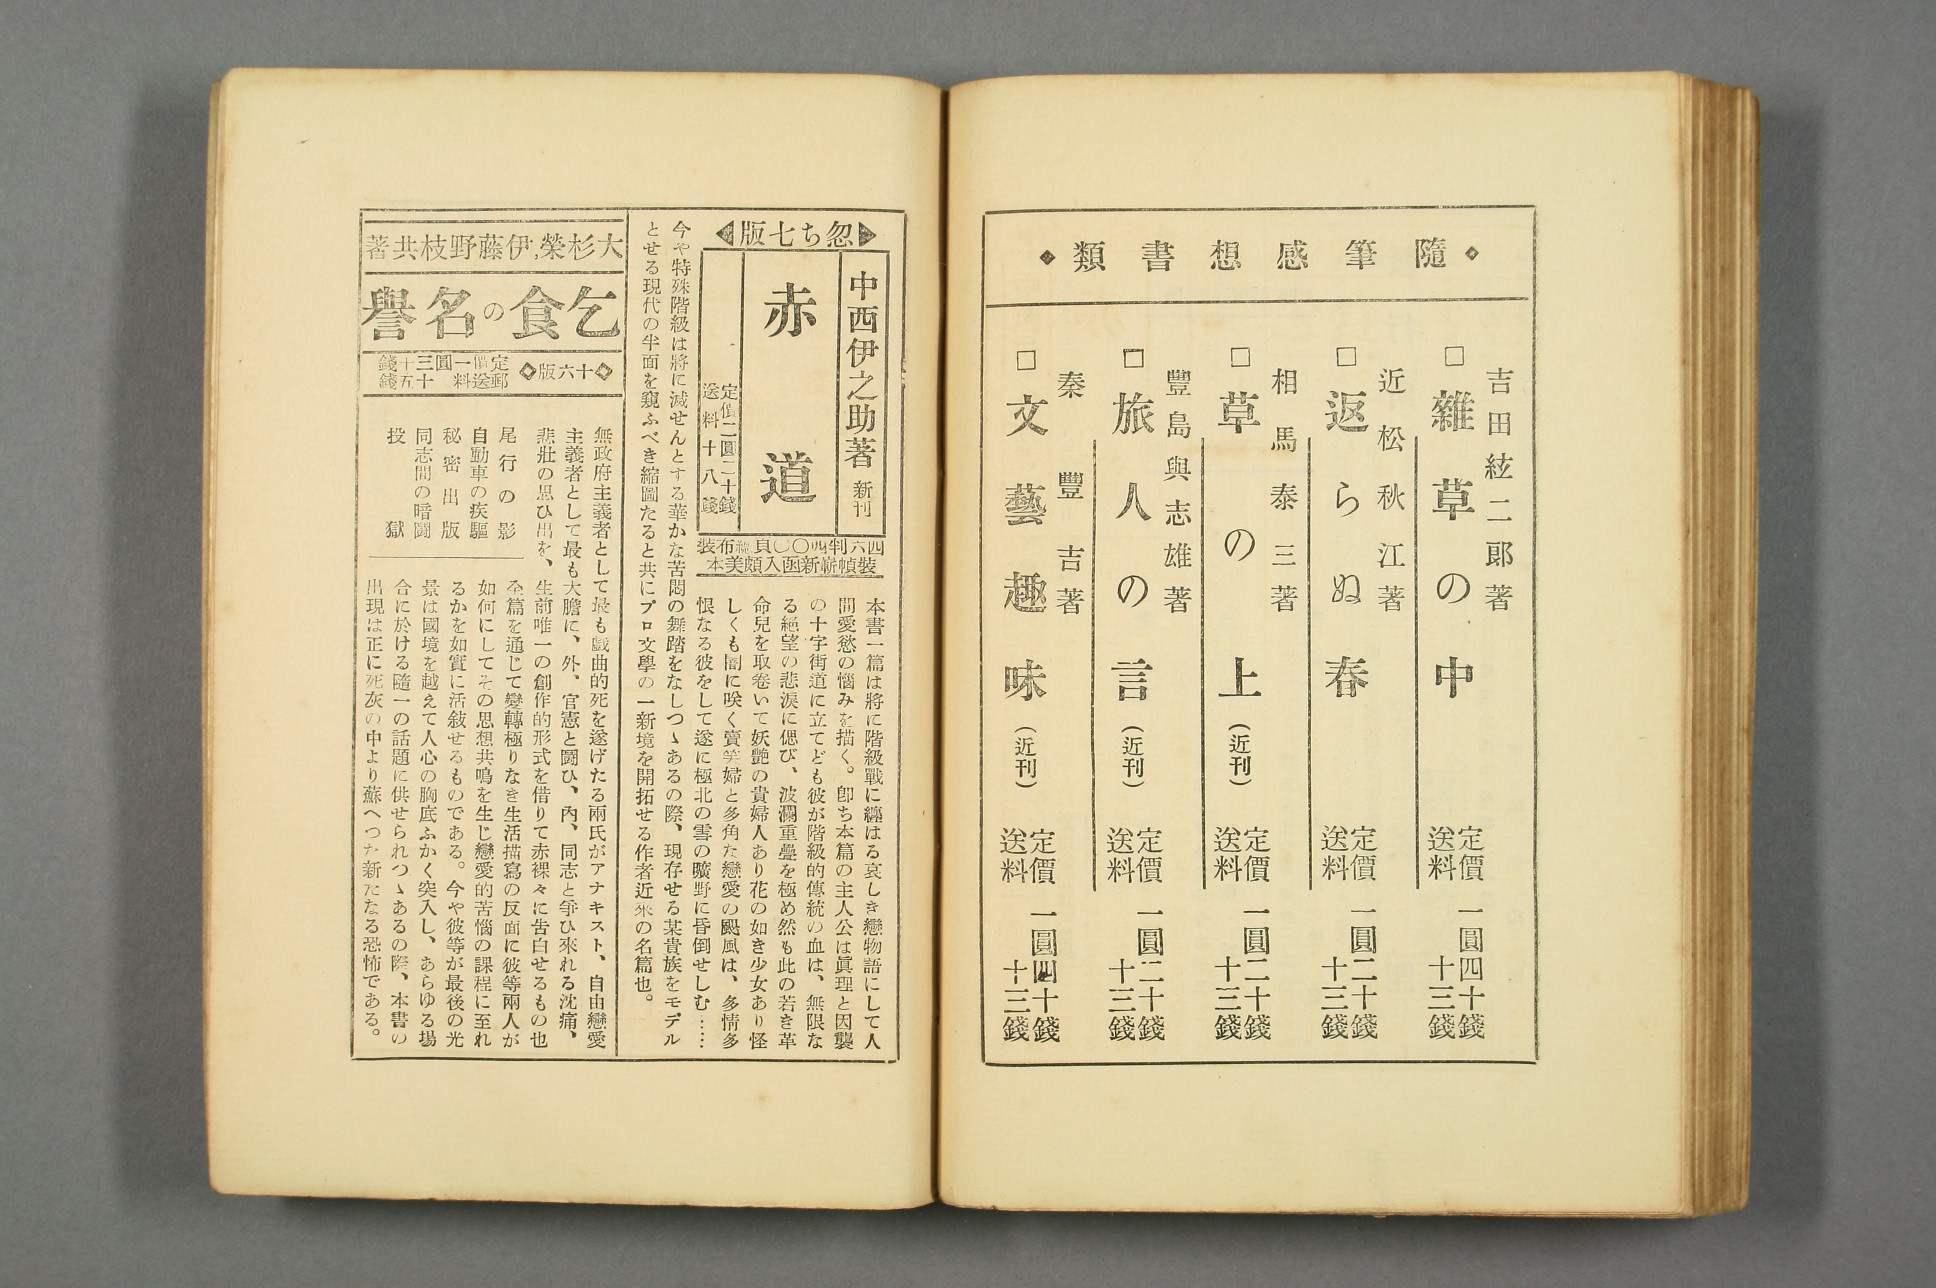 隨筆感想書類
吉田絃二郎著
□雜草の中
定價一圓四十錢
送料十三錢
近松秋江著
□返らぬ春
定價一圓二十錢
送料十三錢
相馬泰三著
□草の上(近刊)
定價一圓二十錢
送料十三錢
豐島與志雄著
□旅人の言(近刊)
定價一圓二十錢
送料十三錢
秦豐吉著
□文藝趣味(近刊)
定價一圓四十錢
送料十三錢
忽ち七版
中西伊之助著 新刊
赤道
定價二圓二十錢
送料十八錢
四六判四〇〇頁總布裝
裝幀嶄新函入頗美本
本書一篇は將に階級戰に纏はる哀しき戀物語にして人
間愛慾の惱みを描く。卽ち本篇の主人公は眞理と因襲
の十字街道に立てども彼が階級的傳統の血は、無限な
る絕望の悲淚に偲び、波瀾重疊を極め然も此の若き革
命兒を取卷いて妖艷の貴婦人あり花の如き少女あり怪
しくも闇に咲く賣笑婦と多角な戀愛の颶風は、多情多
恨なる彼をして遂に極北の雪の曠野に昏倒せしむ……
今や特殊階級は將に滅せんとする華かな苦悶の舞踏をなしつゝあるの際、現存せる某貴族をモデル
とせる現代の半面を窺ふべき縮圖たると共にプロ文學の一新境を開拓せる作者近來の名篇也。
大杉榮,伊藤野枝共著
乞食の名譽
十六版
定價一圓三十錢
郵送料十五錢
無政府主義者として最も戲曲的死を遂げたる兩氏がアナキスト、自由戀愛
主義者として最も大膽に、外、官憲と鬪ひ、內、同志と爭ひ來れる沈痛、
悲壯の思ひ出を、生前唯一の創作的形式を借りて赤裸々に吿白せるもの也
尾行の影
自動車の疾驅
秘密出版
同志間の暗鬪
投獄
全篇を通じて變轉極りなき生活描寫の反面に彼等兩人が
如何にしてその思想共鳴を生じ戀愛的苦惱の課程に至れ
るかを如實に活敍せるものである。今や彼等が最後の光
景は國境を越えて人心の胸底ふかく突入し、あらゆる場
合に於ける隨一の話題に供せられつゝあるの際、本書の
出現は正に死灰の中より蘇へつた新たなる恐怖である。